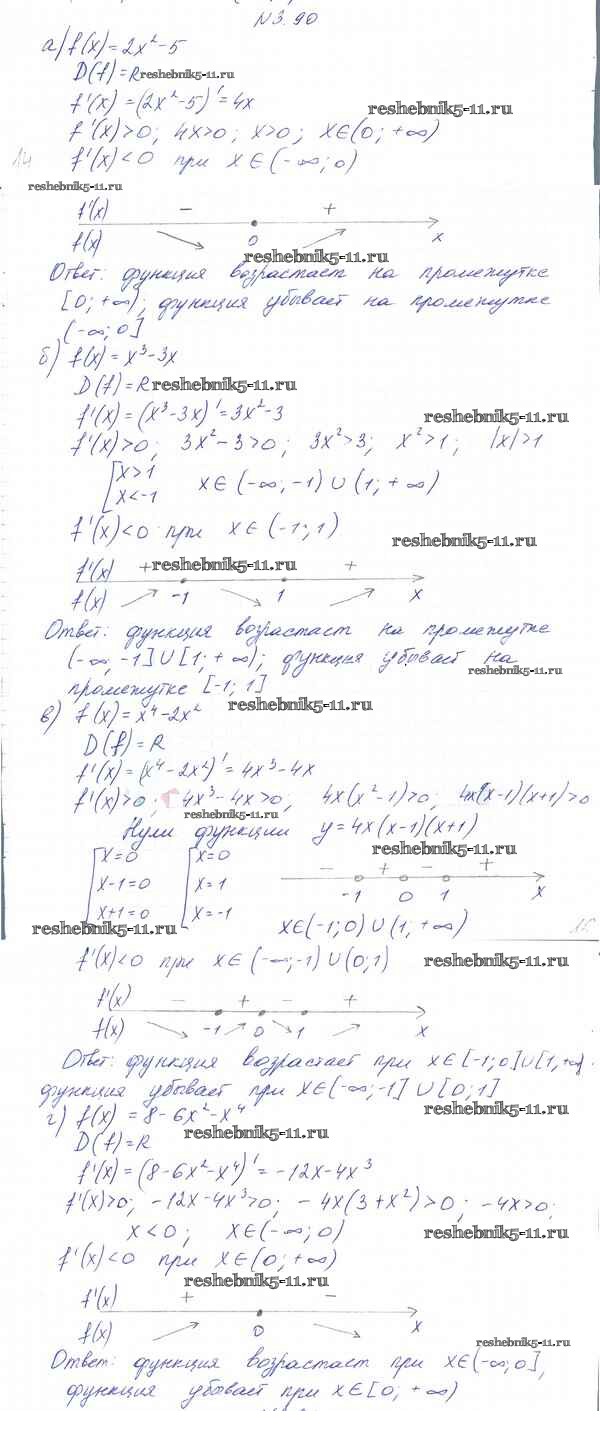 N3.90
а) f(x)=2x²-5
D(f)=R reshebnik5-11.ru
f'(x)=(2x²-5)'=4x
reshebnik5-11.ru
f'(x)>0; 4x>0; x>0; x∈(0;+∞)
14 f'(x)<0 при x∈(-∞;0)
reshebnik5-11.ru
f'(x) - +
f(x) 0 x
reshebnik5-11.ru
Ответ: функция возрастает на промежутке
[0;+∞); функция убывает на промежутке
(-∞;0]
б) f(x)=x³-3x
D(f)=R reshebnik5-11.ru
f'(x)=(x³-3x)'=3x²-3 reshebnik5-11.ru
f'(x)>0; 3x²-3>0; 3x²>3; x²>1; |x|>1
[x>1
x<-1 x∈(-∞;-1)∪(1;+∞)
f'(x)<0 при x∈(-1;1)
reshebnik5-11.ru
f'(x) + reshebnik5-11.ru +
f(x) -1 1 x
Ответ: функция возрастает на промежутке
(-∞,-1]∪[1;+∞); функция убывает на
reshebnik5-11.ru
промежутке [-1;1]
в) f(x)=x⁴-2x² reshebnik5-11.ru
D(f)=R
f'(x)=(x⁴-2x²)'=4x³-4x
f'(x)>0; 4x³-4x>0; 4x(x²-1)>0; 4x(x-1)(x+1)>0
reshebnik5-11.ru
Нули функции y=4x(x-1)(x+1)
reshebnik5-11.ru
[x=0 [x=0
x-1=0 x=1
x+1=0 x=-1
- + - +
-1 0 1 x
reshebnik5-11.ru
x∈(-1;0)∪(1,+∞) 15
f'(x)<0 при x∈(-∞;-1)∪(0;1) reshebnik5-11.ru
f'(x) - + - +
f(x) -1 0 1 x
Ответ: функция возрастает при x∈[-1;0]∪[1,+∞)
функция убывает при x∈(-∞;-1]∪[0;1]
reshebnik5-11.ru
г) f(x)=8-6x²-x⁴
reshebnik5-11.ru
D(f)=R
f'(x)=(8-6x²-x⁴)'=-12x-4x³
f'(x)>0; -12x-4x³>0; -4x(3+x²)>0; -4x>0;
x<0; x∈(-∞;0) reshebnik5-11.ru
f'(x)<0 при x∈(0;+∞)
reshebnik5-11.ru
f'(x) + -
f(x) 0 x
reshebnik5-11.ru
Ответ: функция возрастает при x∈(-∞;0],
функция убывает при x∈[0;+∞)